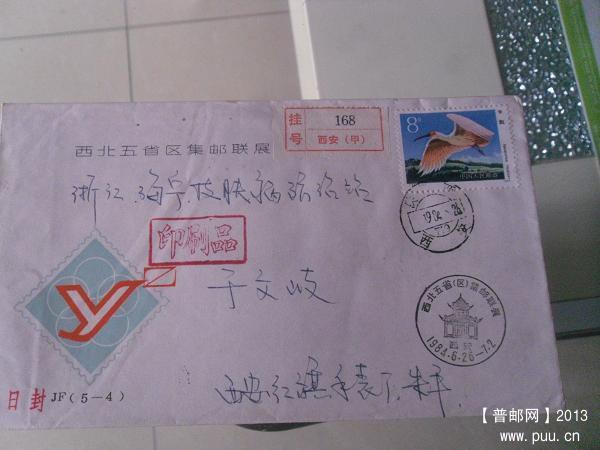 挂号 168
西安(甲)
8分
中国人民邮政
西北五省区集邮联展
浙江 海宁 皮肤病防治站
印刷品
于文岐
西安
西北五省(区)集邮联展
西安
1984.6.26-7.2
西安红旗手表厂 朱平
日封 JF(5-4)
【普邮网】2013
www.puu.cn